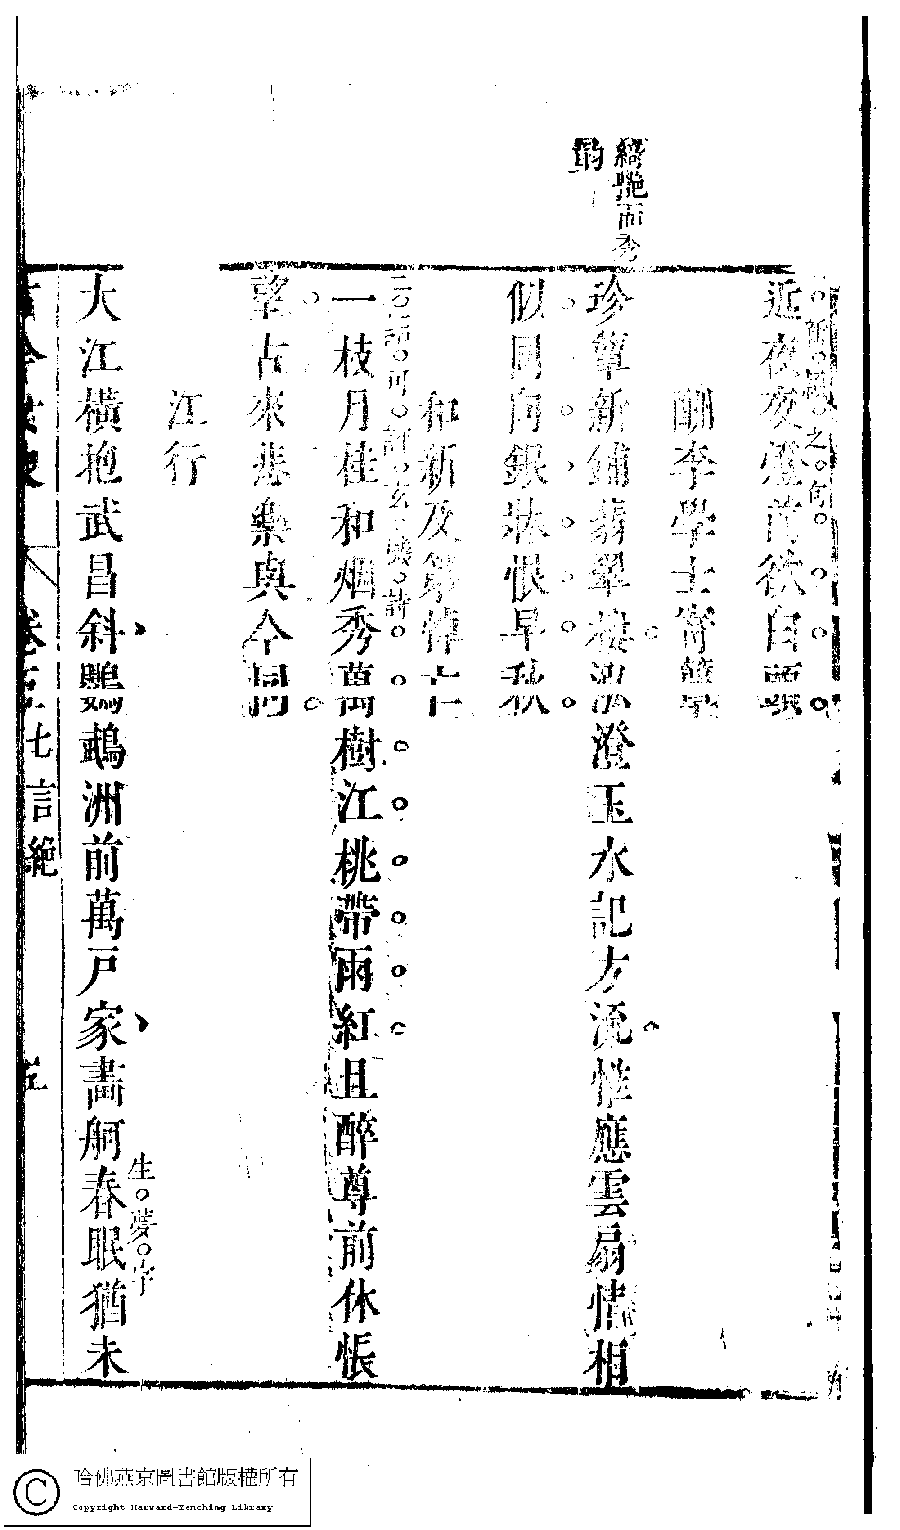 近夜夜燈前欲白頭
之句
酬李學士寄簟
綺艷而秀
韵
珍簟新鋪翡翠樓泓澄玉水記方流惟應雲扇情相
似同向銀牀恨早秋
和新及第悼亡
二語可評玄機詩
一枝月桂和烟秀萬樹江桃帶雨紅且醉尊前休悵
望古來悲樂與今同
江行
生夢字
大江橫抱武昌斜鸚鵡洲前萬戶家畫舸春眠猶未
古今女史 卷五 七言絶
哈佛燕京圖書館版權所有
Copyright Harvard-Yenching Library